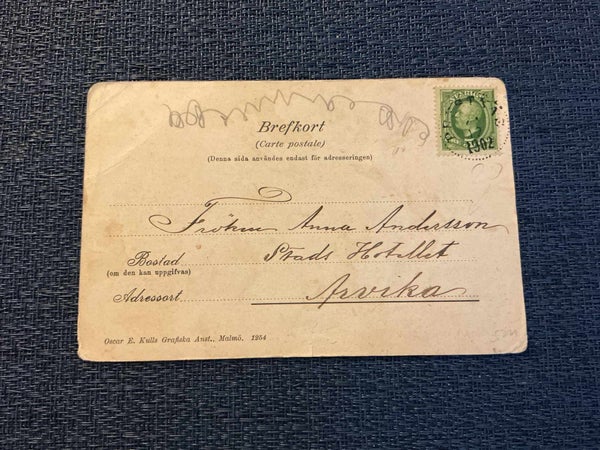 Brefkort
(Carte postale)
(Denna sida användes endast för adresseringen)
1902
Fröken Anna Andersson
Bostad
Stads Hotellet
(om den kan uppgifvas)
Adressort
Arvika
Oscar E. Kulls Grafiska Anst., Malmö. 1254